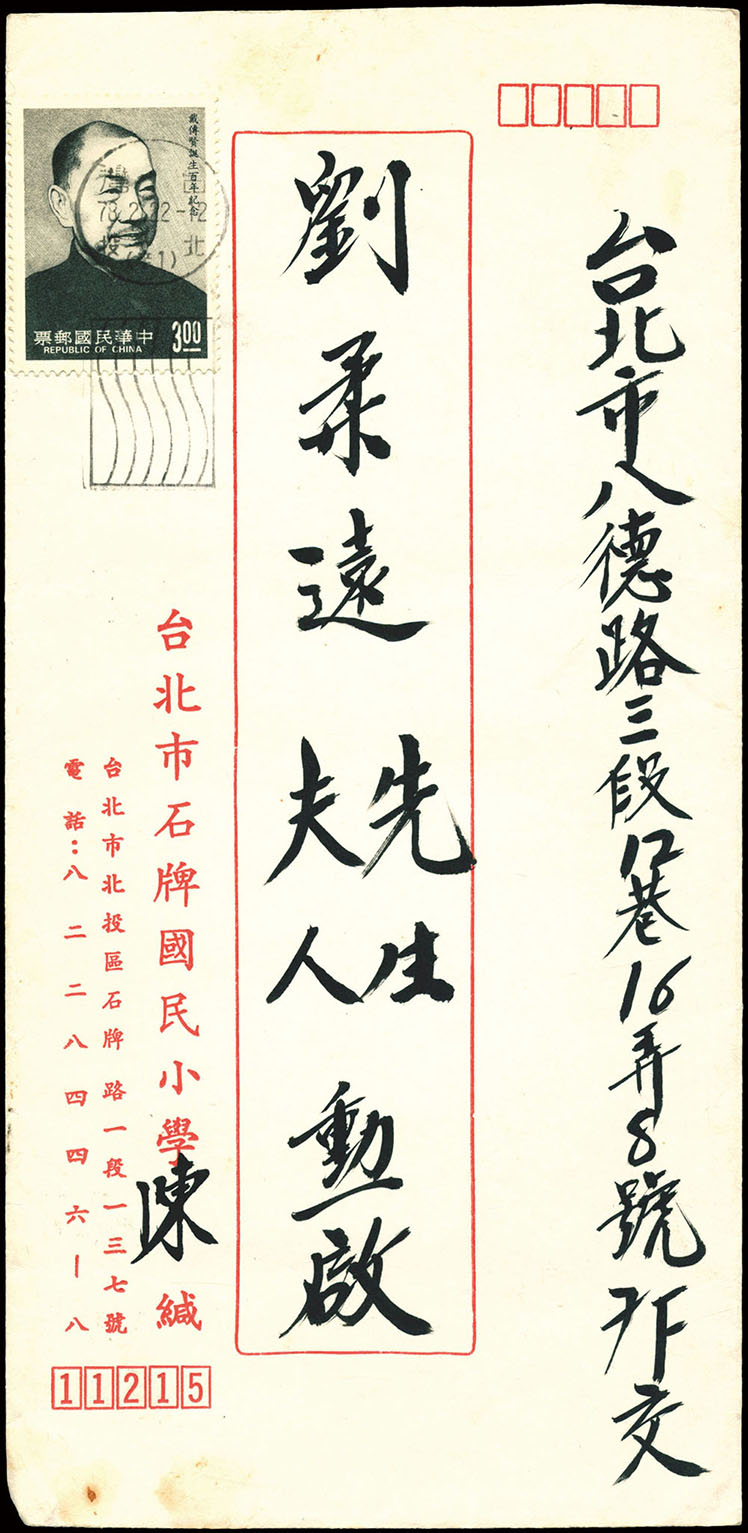 台北市八德路三段12巷16弄8號 交
劉柔遠 先生 夫人 勳啟
戴傳賢誕生百年紀念
中華民國郵票
REPUBLIC OF CHINA
3.00
78.2.22-12
台北市石牌國民小學 陳 緘
台北市北投區石牌路一段一三七號
電話：八二二八四四六－八
11215